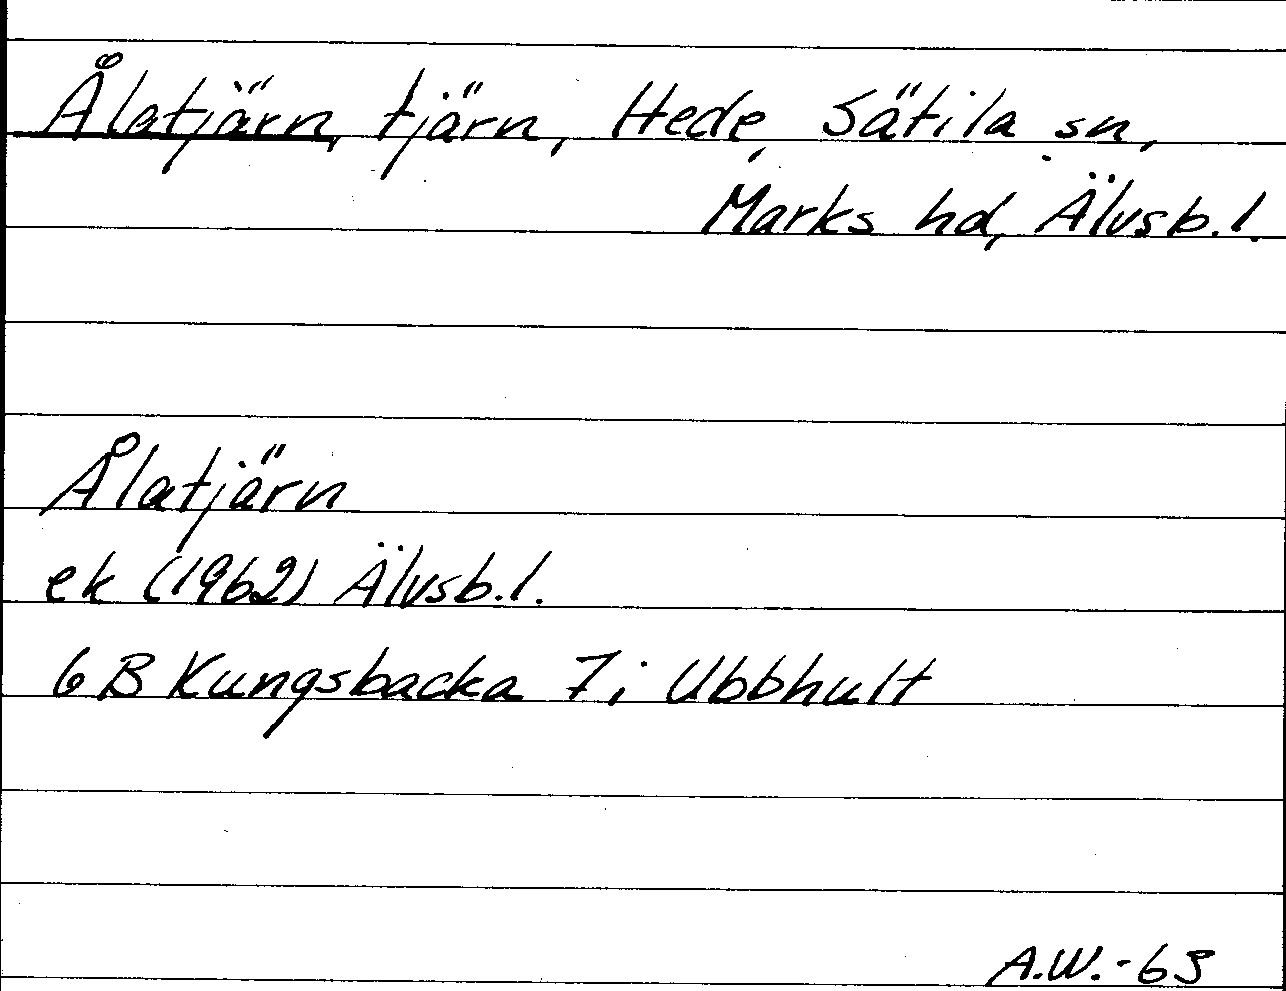 Ålatjärn, tjärn, Hede, Sätila sn,
Marks hd, Älvsb.l.
Ålatjärn
ek (1962) Älvsb.l.
6B Kungsbacka 7i Ubbhult
A.W.-63